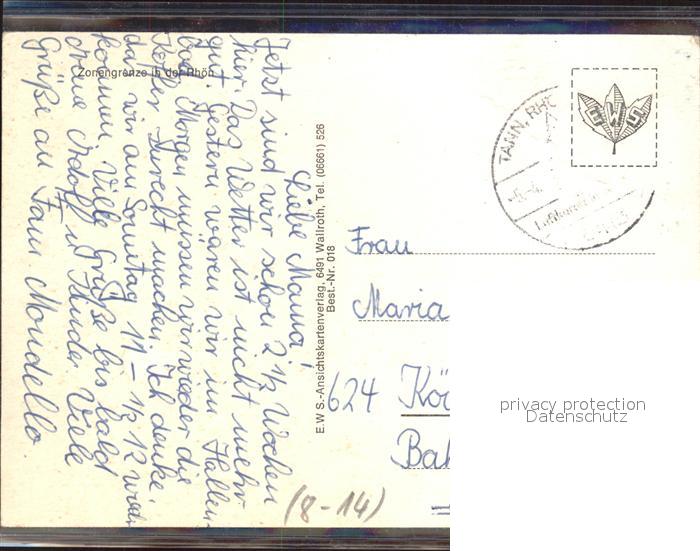 Zonengrenze in der Rhön
Liebe Mama!
Jetzt sind wir schon 2 1/2 Wochen
hier. Das Wetter ist nicht mehr
gut. Gestern waren wir im Hallen-
bad. Morgen müssen wir wieder die
Koffer zurecht machen. Ich denke,
da wir am Sonntag 11 - 1/2 12 wieder
kommen. Viele Grüße bis bald
deine Adolf u Kinder Viele
Grüße an Fam. Mondello.
E.W S.-Ansichtskartenverlag, 6491 Wallroth, Tel. (06661) 526
Best.-Nr. 018
TANN, RHÖ
Luftkurort
EWS
Frau
Maria
624 Kö
Ba
(8-14)
privacy protection
Datenschutz